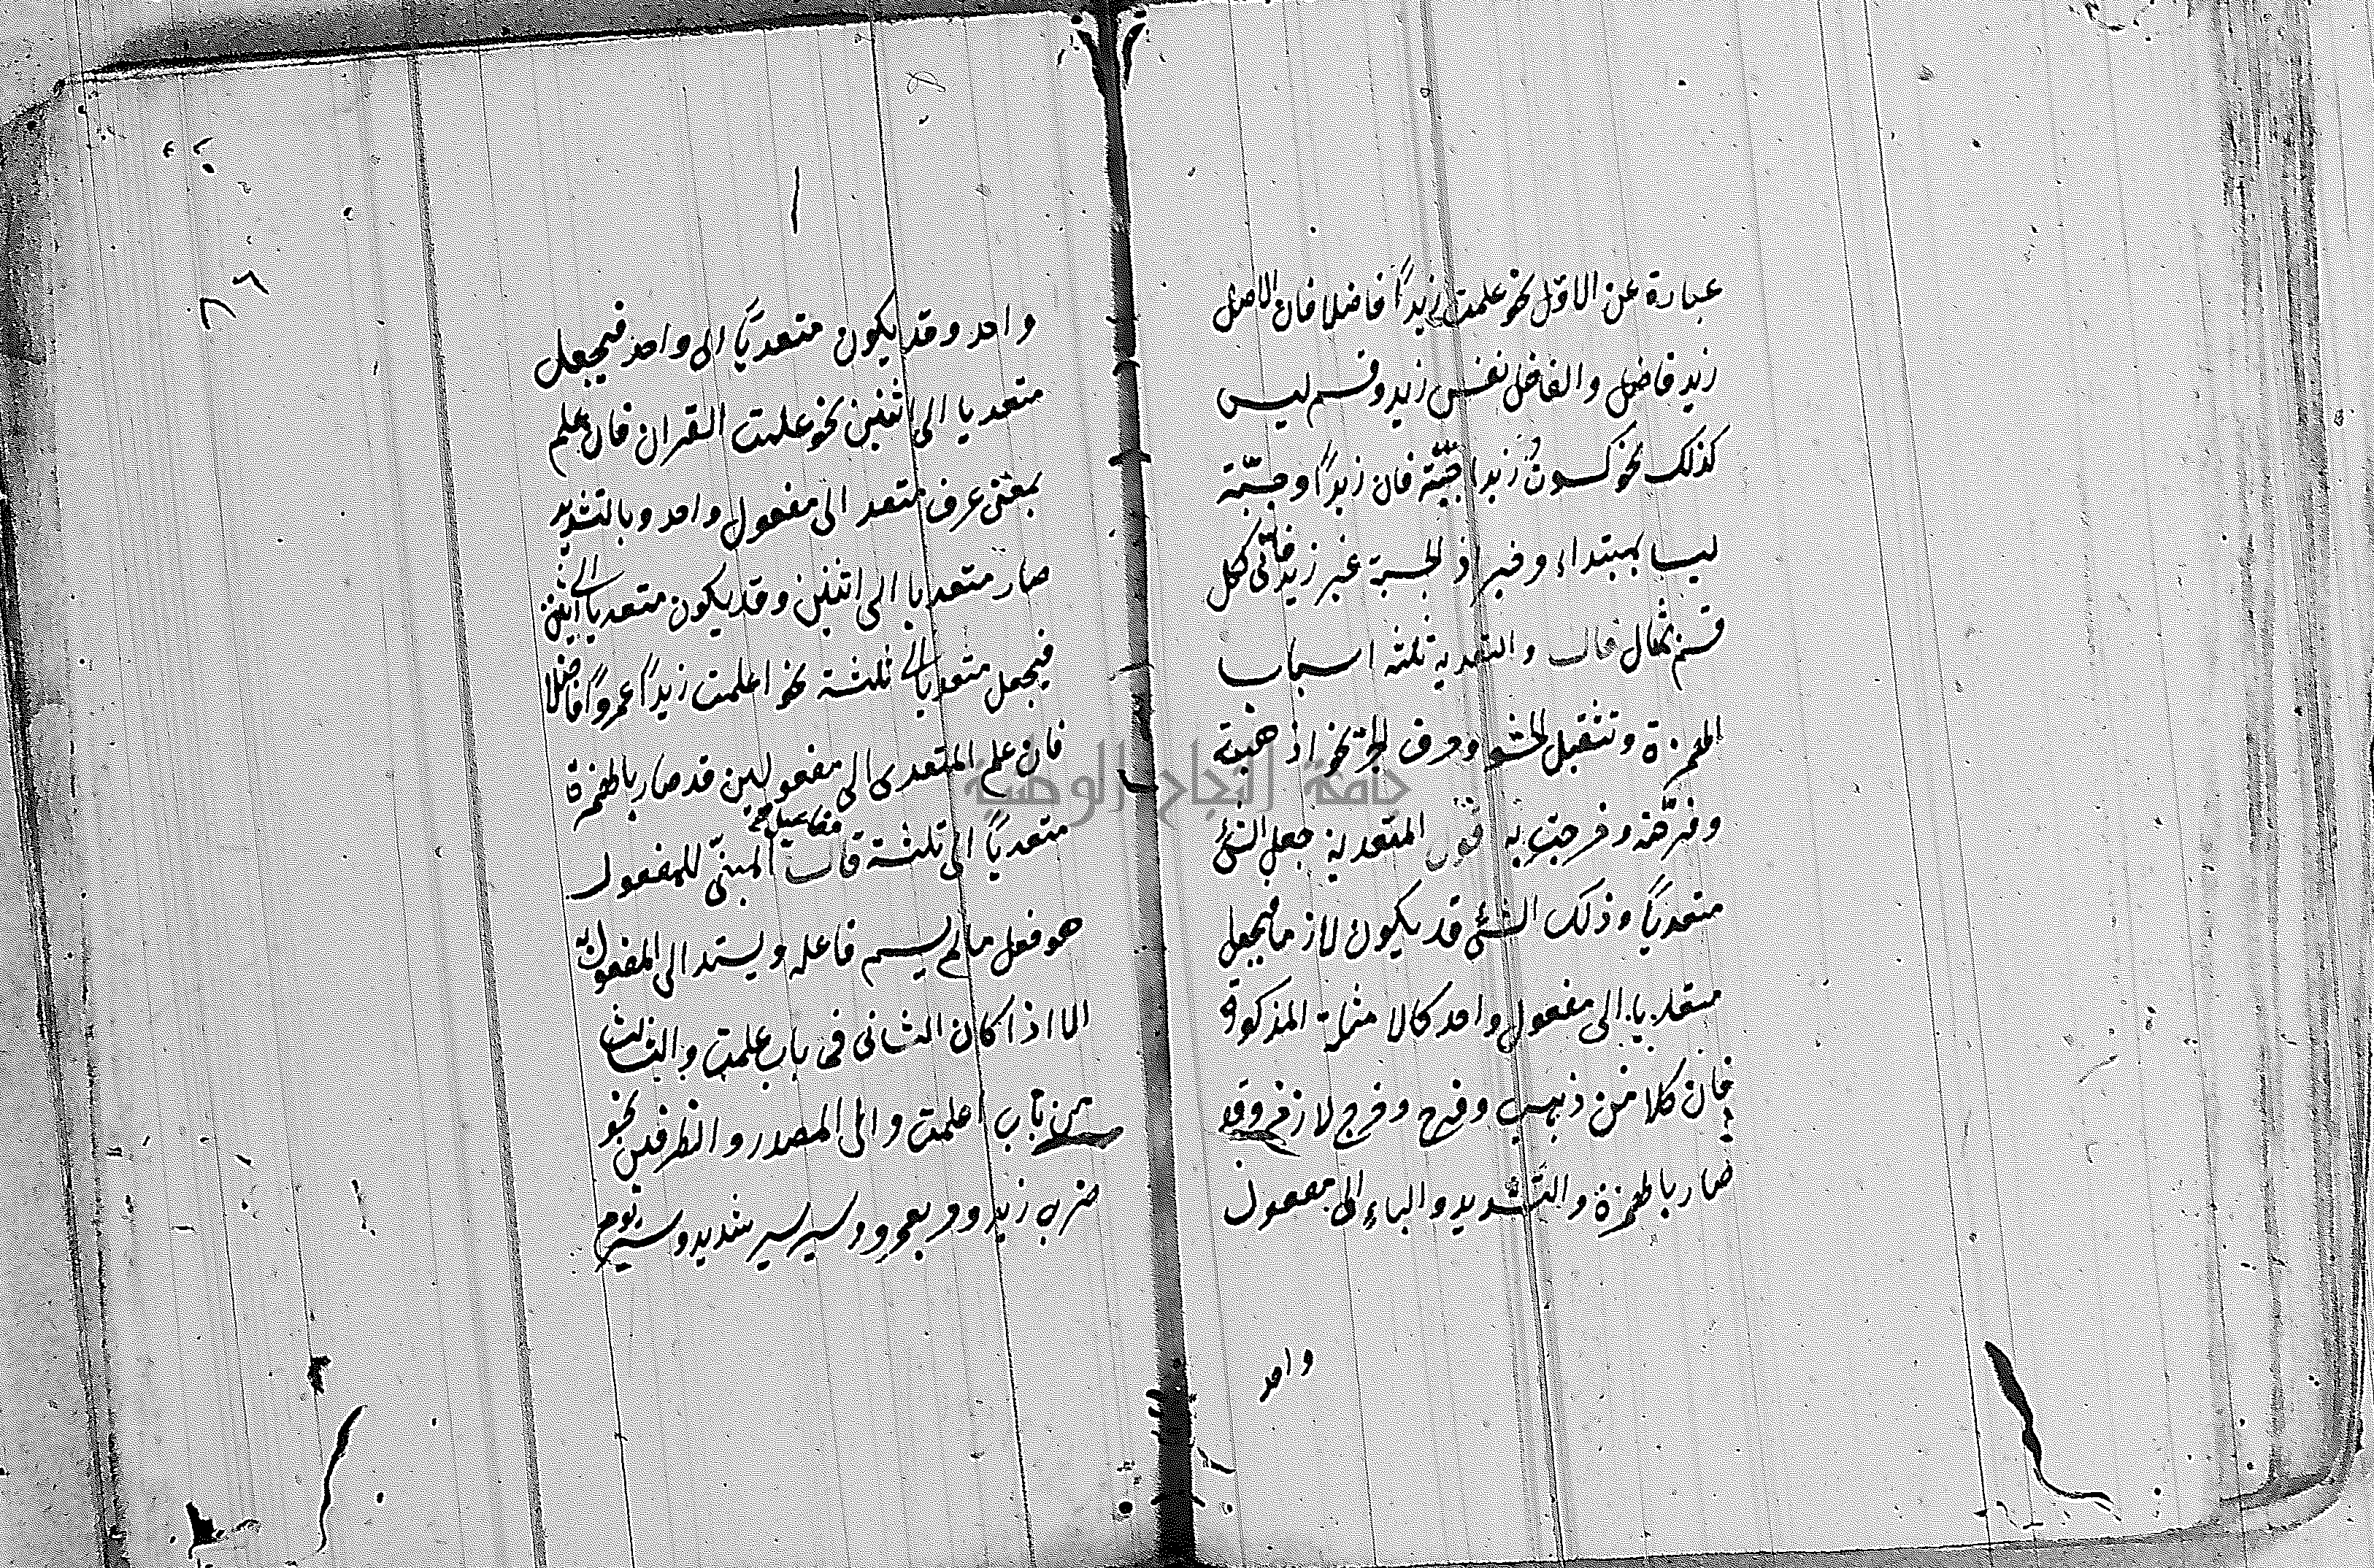 عبارة عن الاول نحو علمت زيدًا فاضلا فان الاصل
زيد فاضل والفاضل نفس زيد وقسم ليس
كذلك نحو كسوتُ زيدا جبّة فان زيدًا وجبّة
ليسا بمبتداء وخبر اذ الجبة غير زيد فاتى لكل
قسم بمثال قال وللتعدية ثلثه اسباب
الهمزة وتثقيل الحشو وحرف الجر نحو اذهبته
وفرّحته وخرجت به اقول التعدية جعل الشئ
متعديًا وذلك الشئ قد يكون لازما فيجعل
متعديا الى مفعول واحد كالامثلة المذكورة
فان كلا من ذهب وفرح وخرج لازم وقد
صار بالهمزة والتشديد والباء الى مفعول
واحد
٨٦
واحد وقد يكون متعديًا الى واحد فيجعل
متعديا الى اثنين نحو علمت القران فان علم
بمعنى عرف متعد الى مفعول واحد وبالتشديد
صار متعديا الى اثنين وقد يكون متعديا الى اثنين
فيجعل متعديا الى ثلثة نحو اعلمت زيدًا عمروًا فاضلا
فان علم المتعدى الى مفعولين قد صار بالهمزة
متعديًا الى ثلثة مفاعيل قال المبنىّ للمفعول
هو فعل ما لم يسم فاعله ويسند الى المفعول به
الا اذا كان الثانى فى باب علمت والثالث
من باب اعلمت والى المصدر والظرفين نحو
ضرب زيد ومر بعمرو وسير سير شديد وسير يوم
جامعة النجاح الوطنية